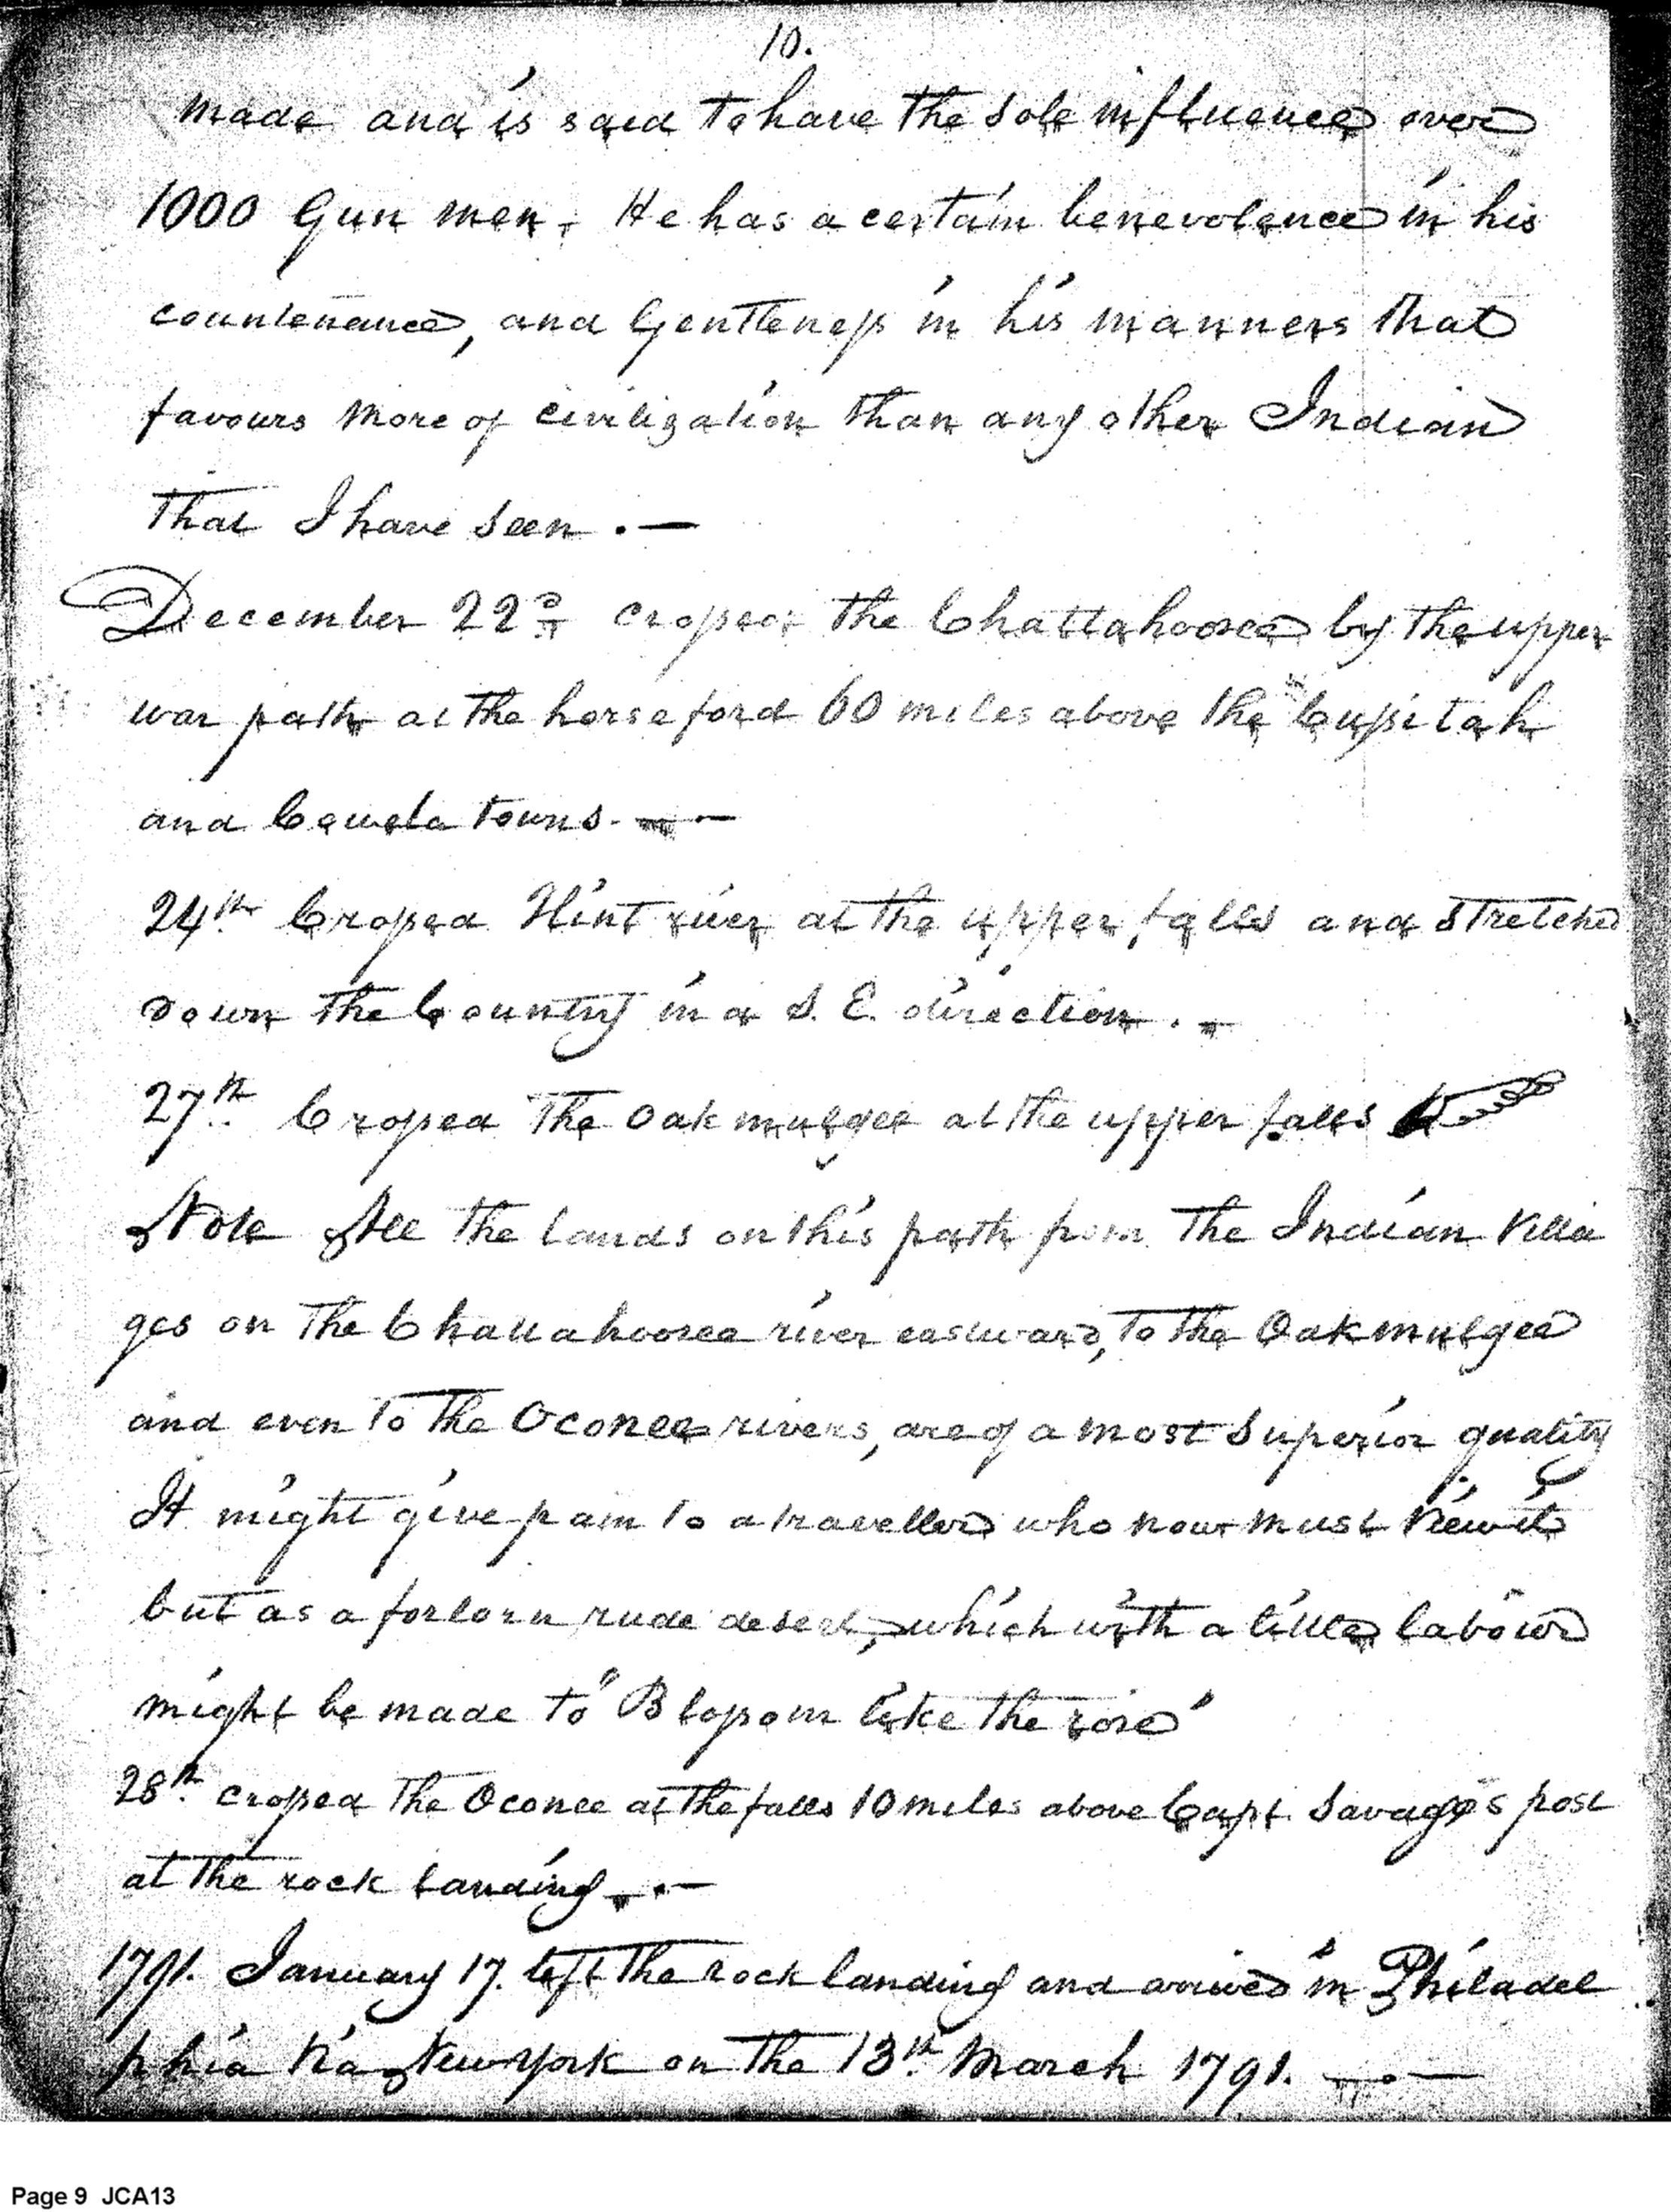 10.
made and is said to have the sole influence over
1000 Gun men. He has a certain benevolence in his
countenance, and Gentleness in his manners that
favours more of civilization than any other Indian
that I have seen . —
December 22d crossed the Chattahoosee by the upper
war path at the horse ford 60 miles above the Cussitah
and Coweta towns. — —
24th. Crossed Flint river at the upper falls and stretched
down the Country in a S. E. direction . —
27th. Crossed the Oakmulgee at the upper falls
Note All the lands on this path from the Indian Villa
ges on the Chattahoosee river eastward, to the Oakmulgee
and even to the Oconee rivers, are of a most superior quality
It might give pain to a traveller who now must View it
but as a forlorn rude desert, which with a little labour
might be made to "Blossom like the rose"
28th. crossed the Oconee at the falls 10 miles above Capt. Savages post
at the rock landing . —
1791. January 17. left the rock landing and arrived in Philadel
phia Via New York on the 13th. March 1791. — . —
Page 9 JCA13